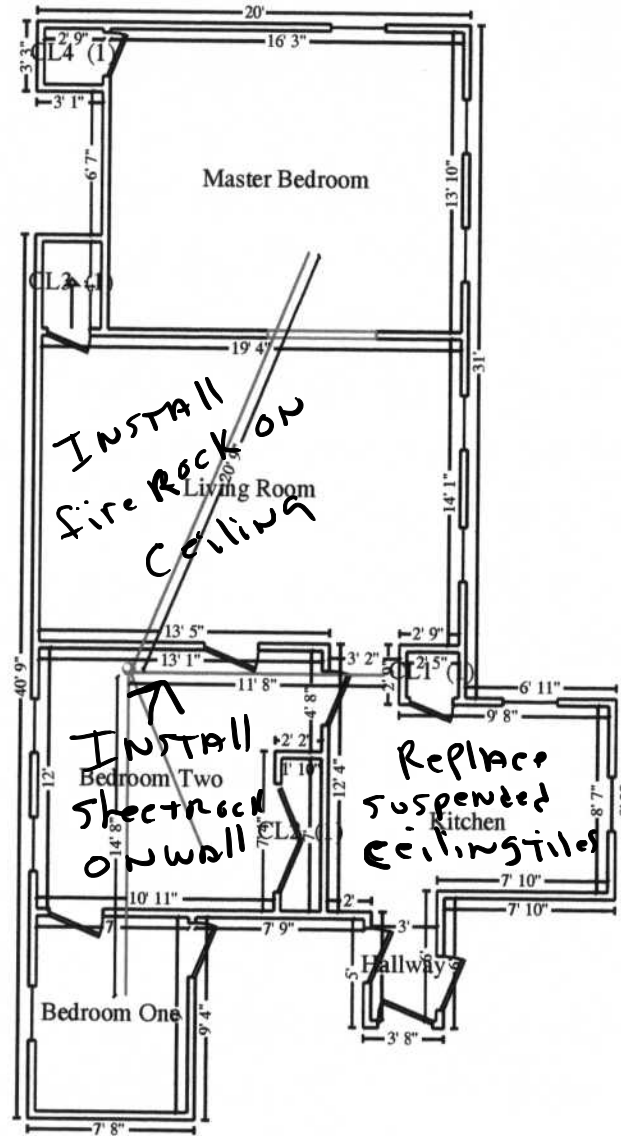 20'
2' 9"
16' 3"
CL4 (1)
3' 3"
3' 1"
6' 7"
Master Bedroom
13' 10"
CL3 (1)
19' 4"
31'
INSTALL
fire ROCK ON
Ceiling
20' 9"
Living Room
14' 1"
13' 5"
2' 9"
13' 1"
3' 2"
2' 5"
CL1 (1)
11' 8"
6' 11"
9' 8"
40' 9"
4' 8"
INSTALL
SheetRock
ON WALL
2' 2"
1' 10"
12'
12' 4"
Bedroom Two
14' 8"
CL2 (1)
Replace
suspended
ceiling tiles
Kitchen
8' 7"
10' 11"
2'
7' 10"
7' 10"
7'
7' 9"
3'
5'
Hallway
6'
Bedroom One
9' 4"
3' 8"
7' 8"